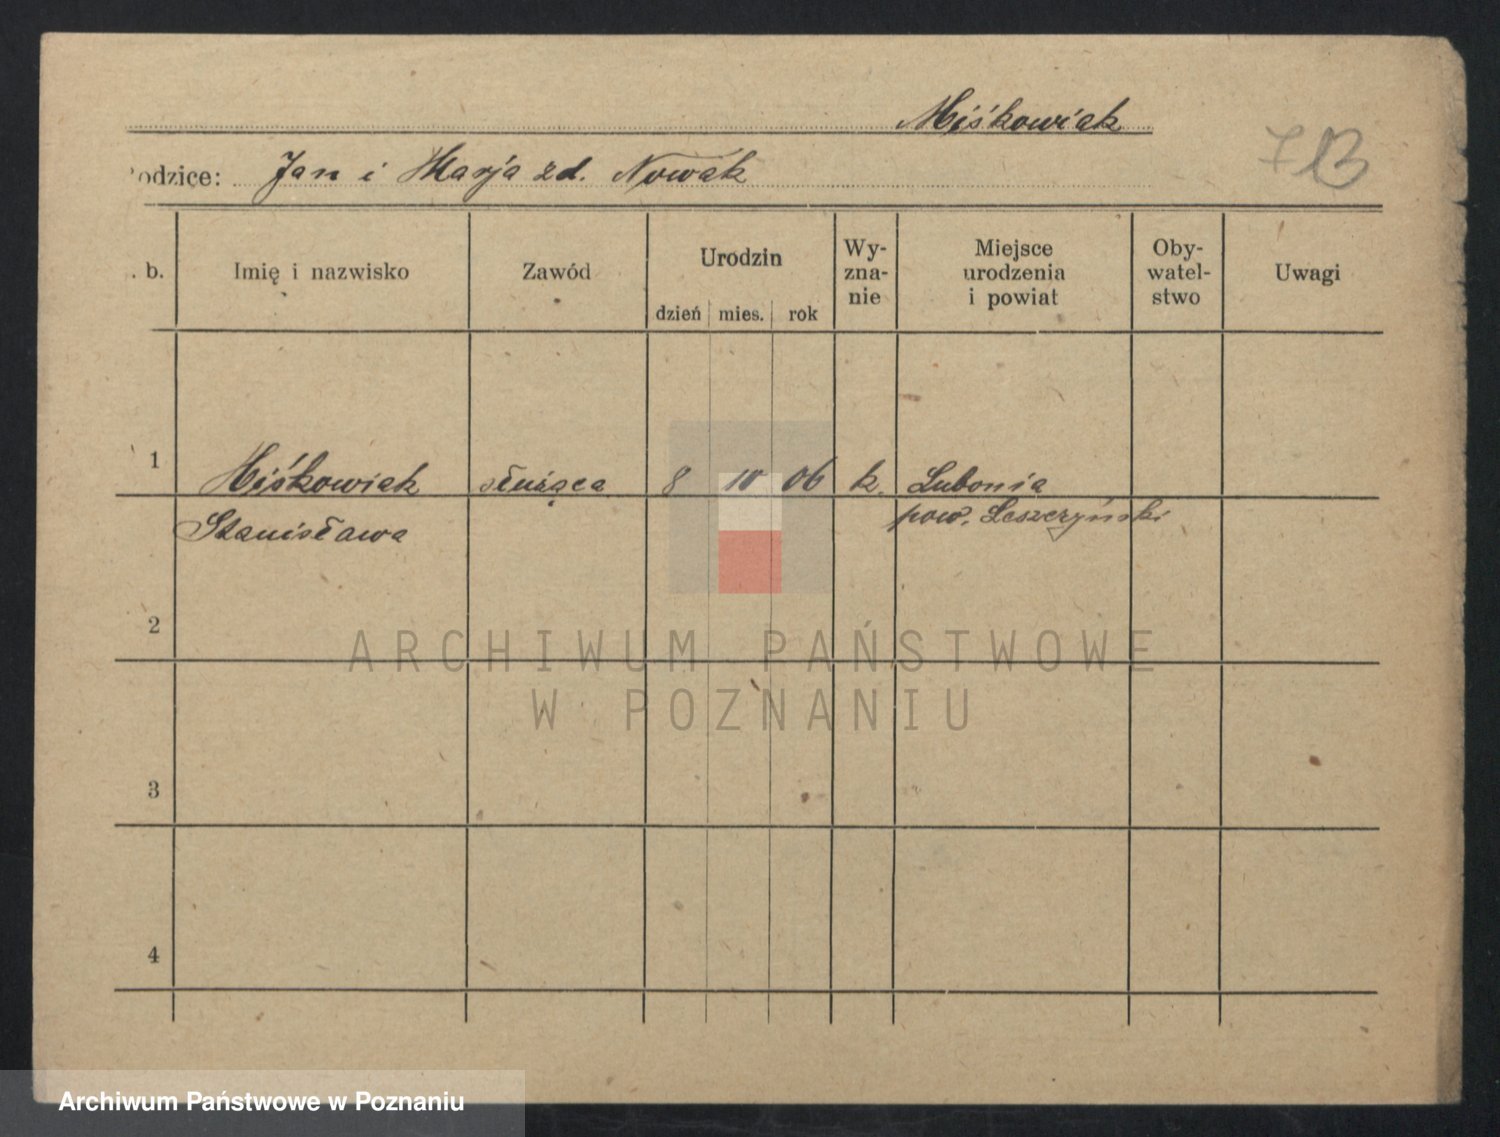 Miśkowiak
odzice: Jan i Marja zd. Nowak
. b.
Imię i nazwisko
Zawód
Urodzin
dzień mies. rok
Wy-
zna-
nie
Miejsce
urodzenia
i powiat
Oby-
watel-
stwo
Uwagi
1 Miśkowiak służąca 8 10 06 k. Lubonia
Stanisława pow. Leszczyński
2
3
4
ARCHIWUM PAŃSTWOWE
W POZNANIU
Archiwum Państwowe w Poznaniu